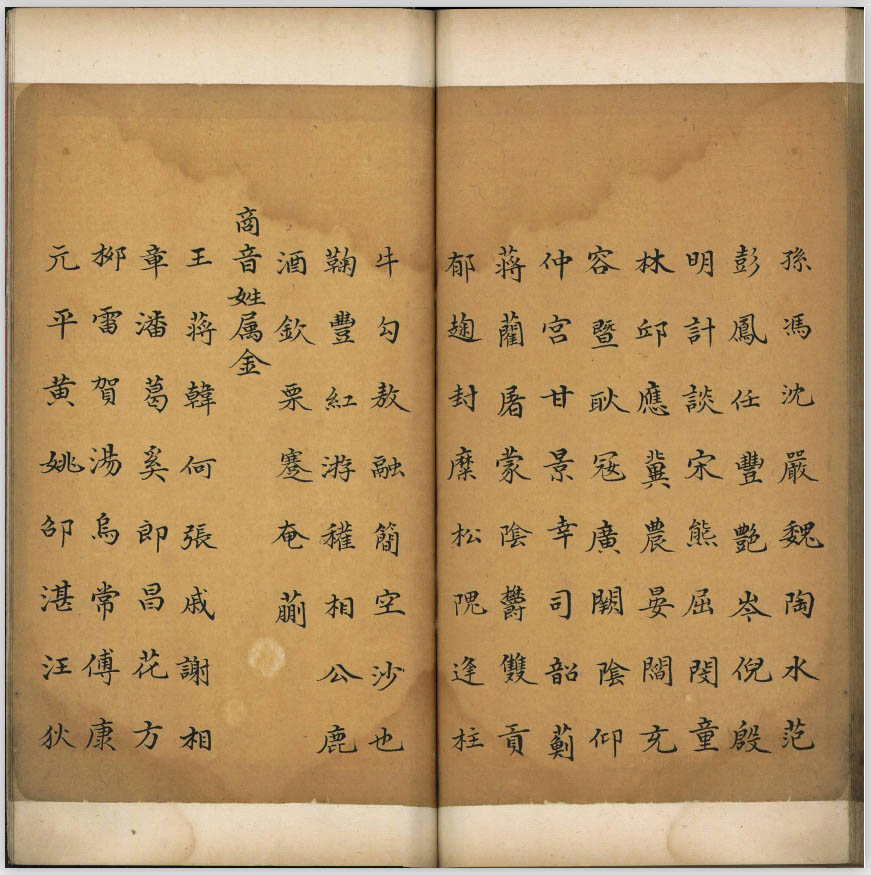 孫馮沈嚴魏陶水范
彭鳳任豐艷岑倪殷
明計談宋熊屈閔童
林邱應冀農晏闊充
容暨耿冦廣闕陰仰
仲宮甘景幸司韶薊
蔣藺屠蒙陰欝雙貢
郁麹封糜松隗逢柱
牛勾敖融簡空沙也
鞠豐紅游䅣相公鹿
酒欽栗蹇奄蒯
商音姓属金
王蔣韓何張戚謝相
章潘葛奚郎昌花方
柳雷賀湯烏常傅康
元平黄姚邵湛汪狄